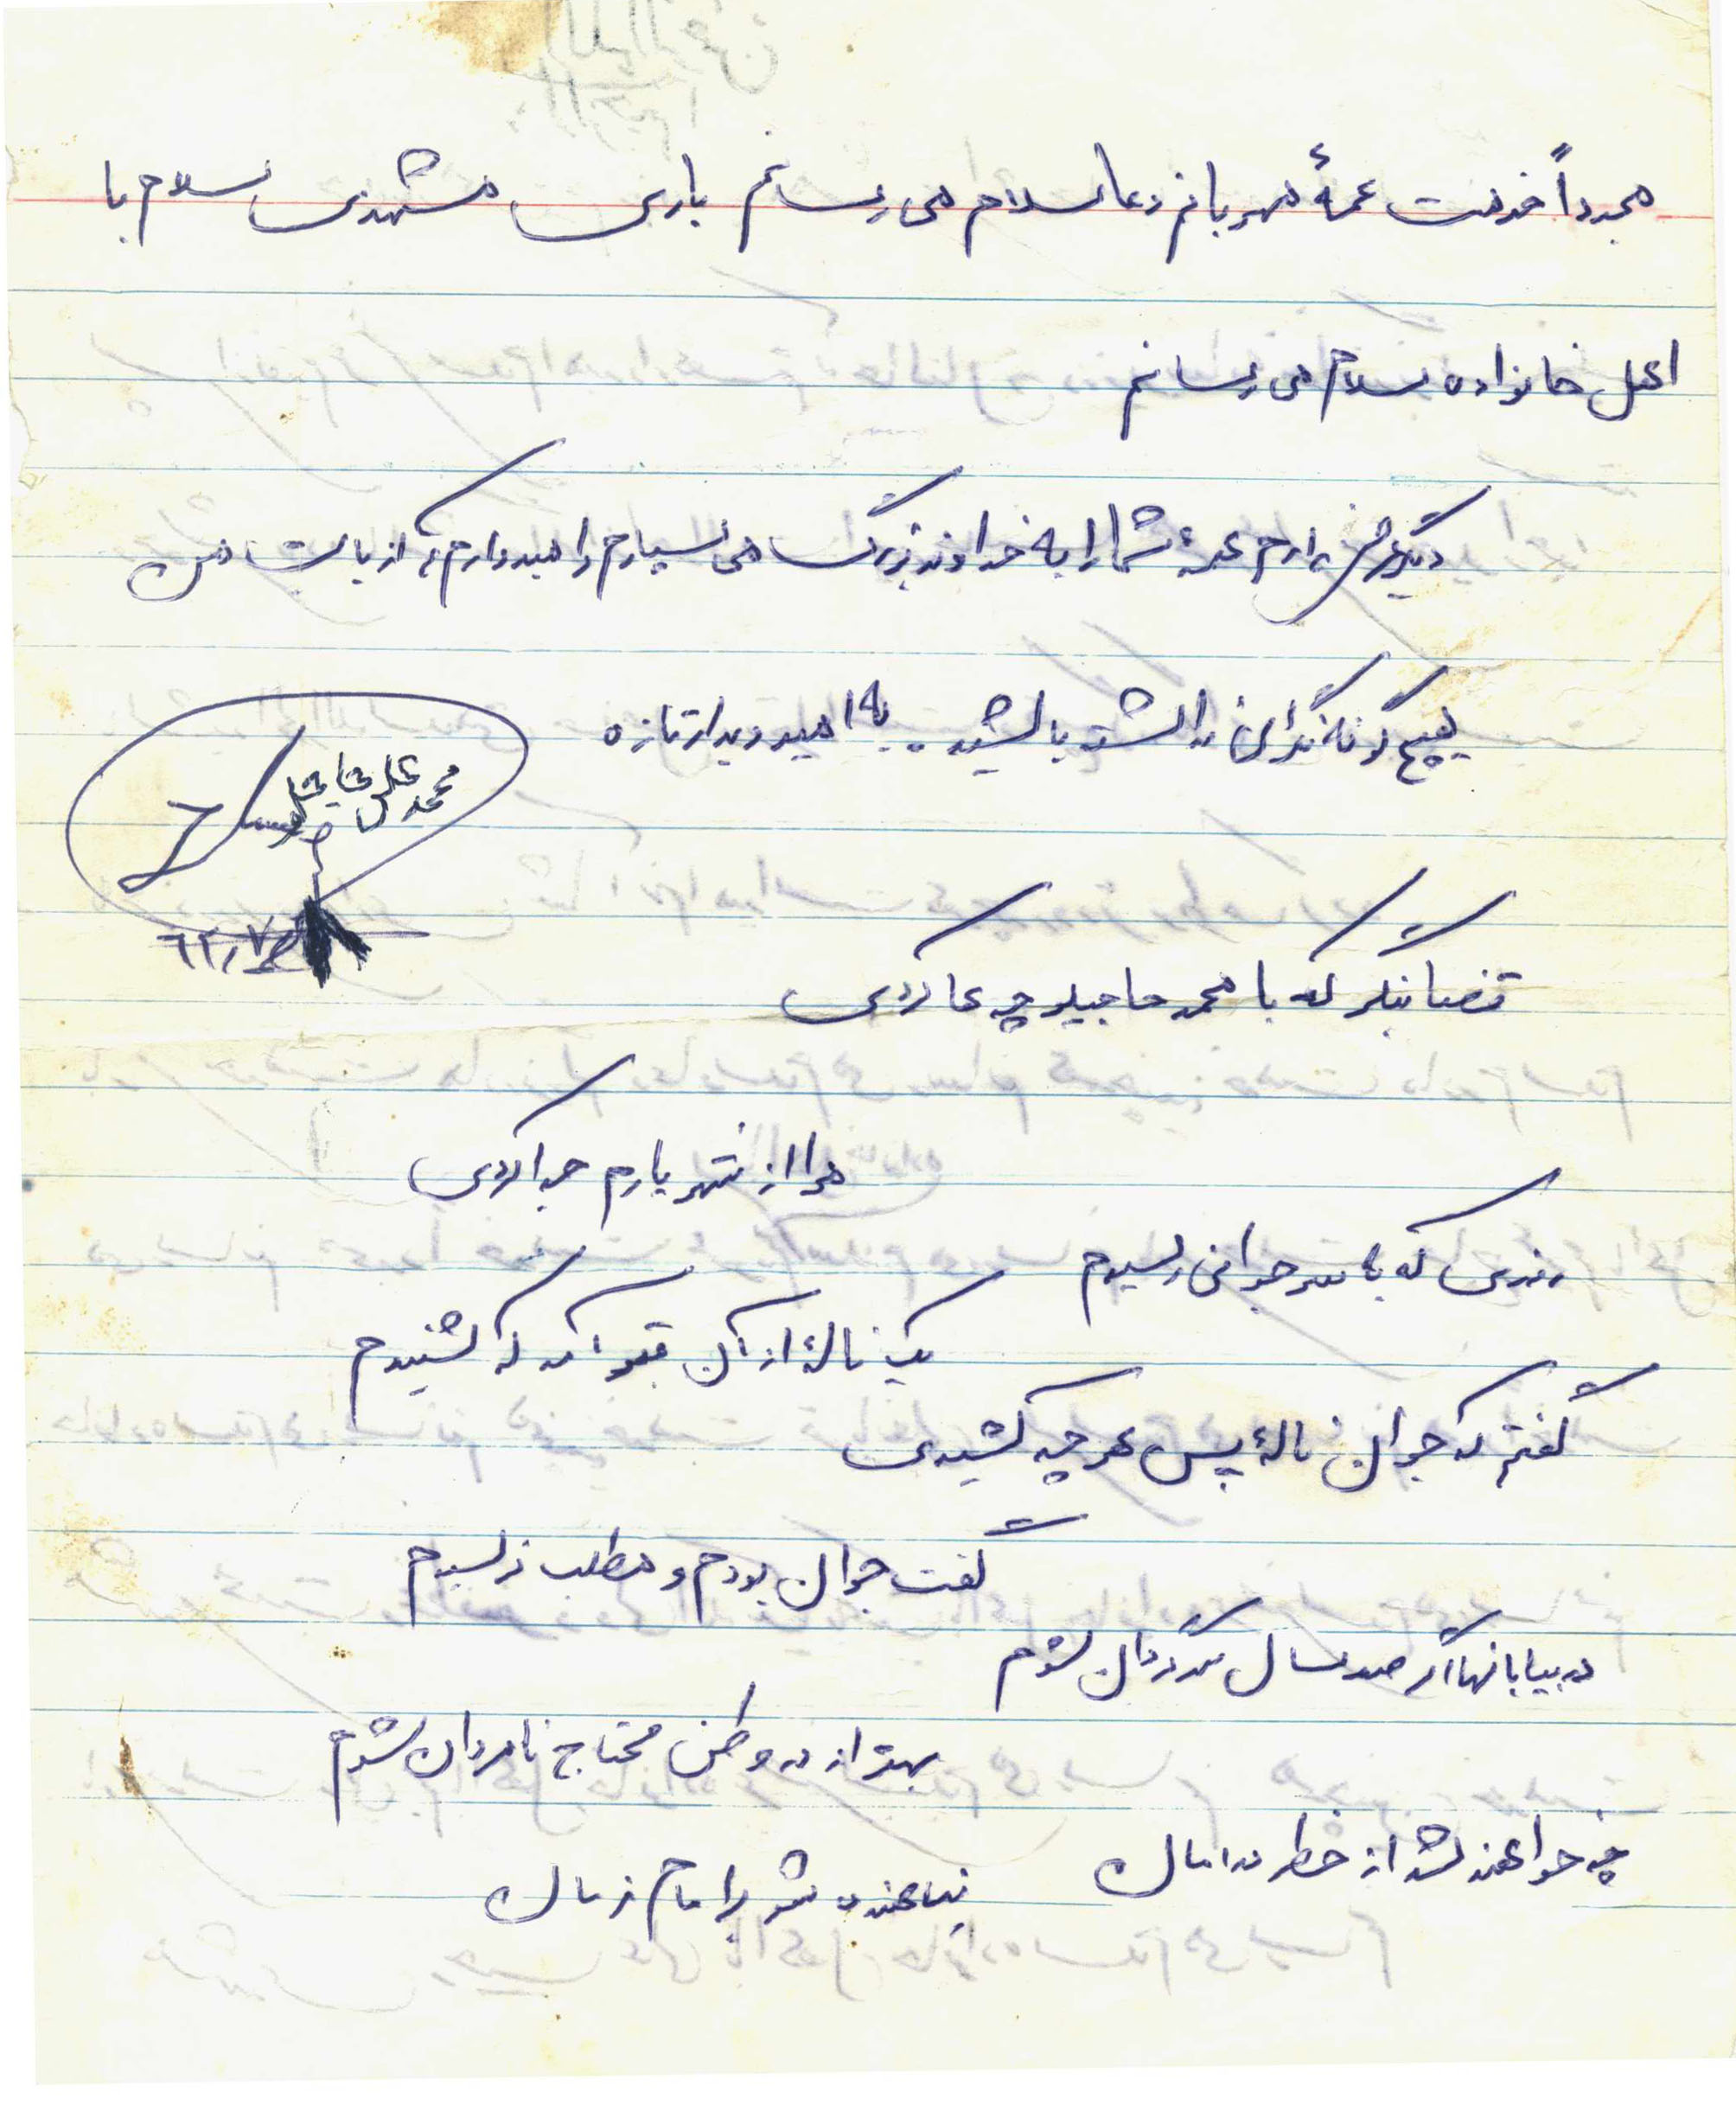 مجدداً خدمت عمهٔ مهربانم دعا سلام می رسانم باری مشهدی سلام با
اهل خانواده سلام می رسانم
دیگر عرضی ندارم همهٔ شما را به خداوند بزرگ می سپارم و امیدوارم که از بابت من
هیچ گونه نگرانی نداشته باشید. به امید دیدار تازه
محمد علی
قضا بنگر که با محمد حاجیلو چه ها کردی
مرا از شهر یارم جدا کردی
رندی که به قبر جوانی رسیدم
یک نالهٔ از آن قبر آمد که شنیدم
گفتم که جوان نالهٔ پس هر چه کشیدی
گفت جوان بودم و مطلب نرسیدم
در بیابانها اگر صد سال سرگردان شوم
بهتر از در وطن محتاج نامردان شوم
چه خواهند شد از خطر در امان
پناهنده شو بر امام زمان